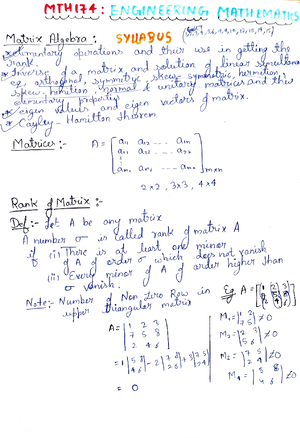 MTH174: ENGINEERING MATHEMATICS
Matrix Algebra:- SYLLABUS
*elementary operations and their use in getting the
rank.
*Inverse of a matrix and solution of linear simultaneous
eq. orthogonal, symmetric, skew-symmetric, hermition,
skew-hermition, normal & unitary matrices and this
elementary property
*eigen values and eigen vectors of matrix.
*Cayley-Hamilton theorem
Matrices:- A = [a11 a12 ... a1n
a21 a22 ... a2n
am1 am2 ... amn]mxn
2x2, 3x3, 4x4
Rank of Matrix:-
Def:- Let A be any matrix
A number r is called rank of matrix A
if (i) There is at least one minor
of A of order r which does not vanish
(ii) Every minor of A of order higher than
r vanish.
Note:- Number of Non Zero Row in
upper triangular matrix
Eg A =
A = | 1 2 3
7 5 8
2 4 6 |
= 0
M1 = | 1 2
7 5 | ≠0
M2 = | 2 3
5 8 | ≠0
M3 = | 7 5
2 4 | ≠0
M4 = | 5 8
4 6 | ≠0